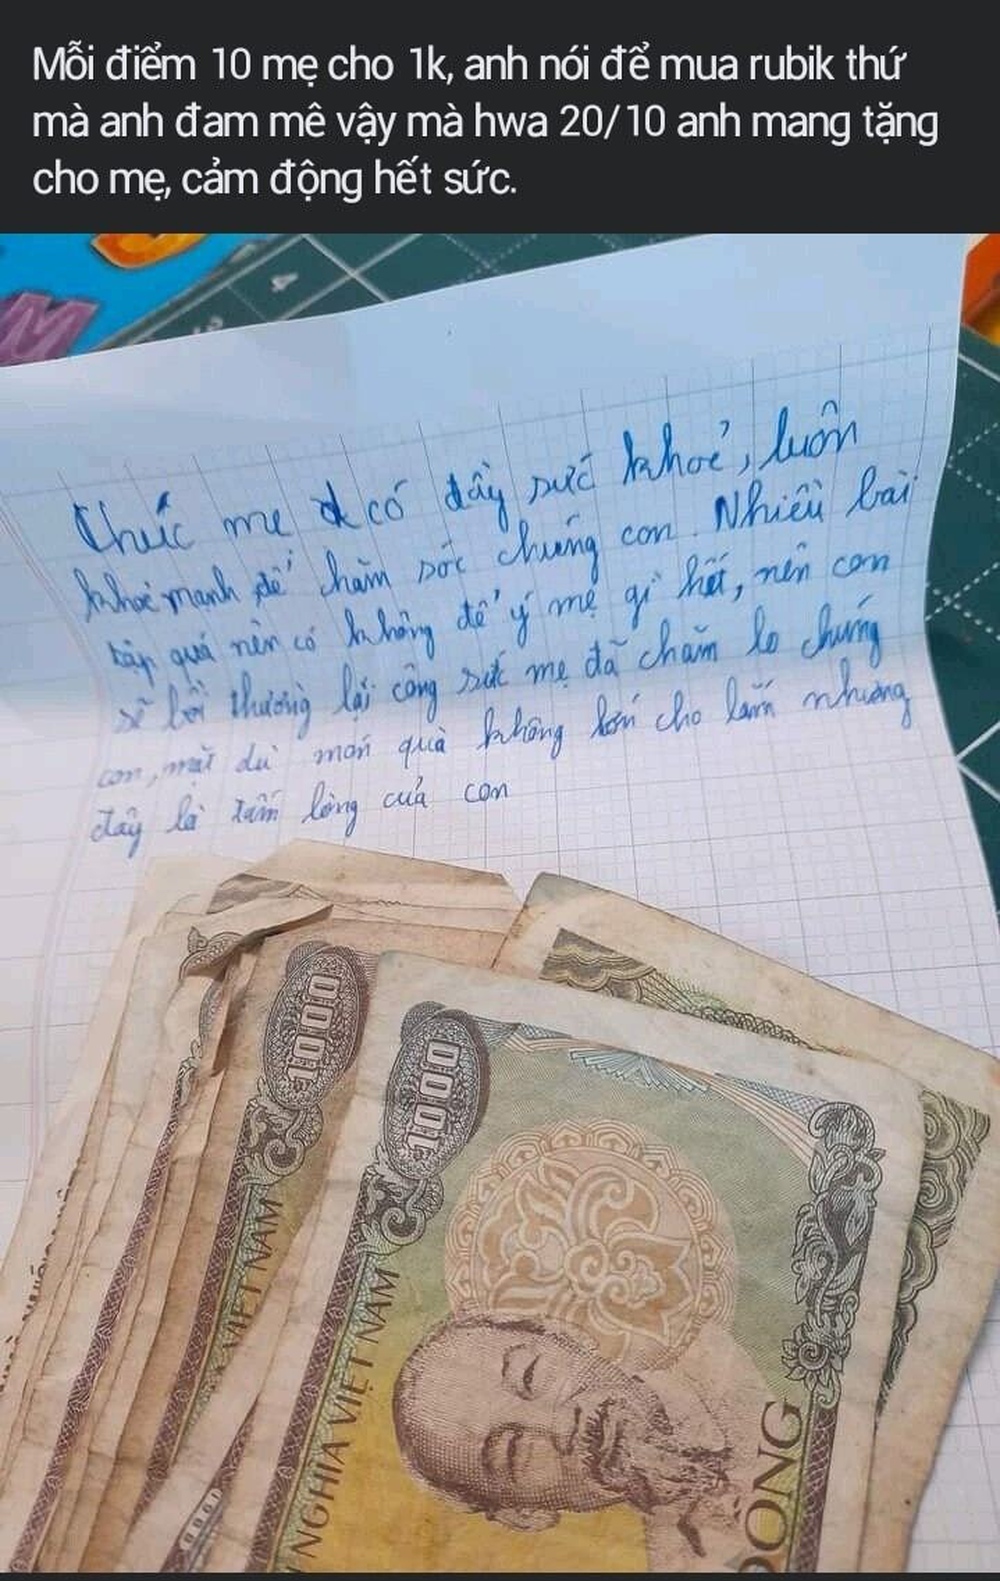 Mỗi điểm 10 mẹ cho 1k, anh nói để mua rubik thứ
mà anh đam mê vậy mà hwa 20/10 anh mang tặng
cho mẹ, cảm động hết sức.
M
4
Chúc mẹ có đầy sức khoẻ, luôn
khoẻ mạnh để chăm sóc chúng con. Nhiều bài
tập quá nên có không để ý mẹ gì hết, nên con
sẽ bồi thường lại công sức mẹ đã chăm lo chúng
con, mặt dù món quà không lớn cho lắm nhưng
đây là tấm lòng của con
1000
1000
VIỆT NAM
NGHĨA VIỆT NAM
ĐỒNG